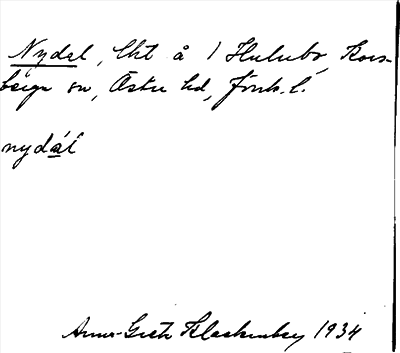 Nydal, lht å 1 Hulubo, Kors-
berga sn, Östra hd, Jönk. l.
nydál
Anna-Greta Klackenberg 1934